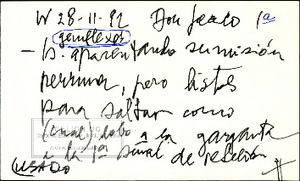 W 28-11-92 Don Jaco 1ª
genuflexos
- b. aparentando sumisión
perruna, pero listos
para saltar como
lobo a la garganta
a la 1ª señal de rebelión
(USADO